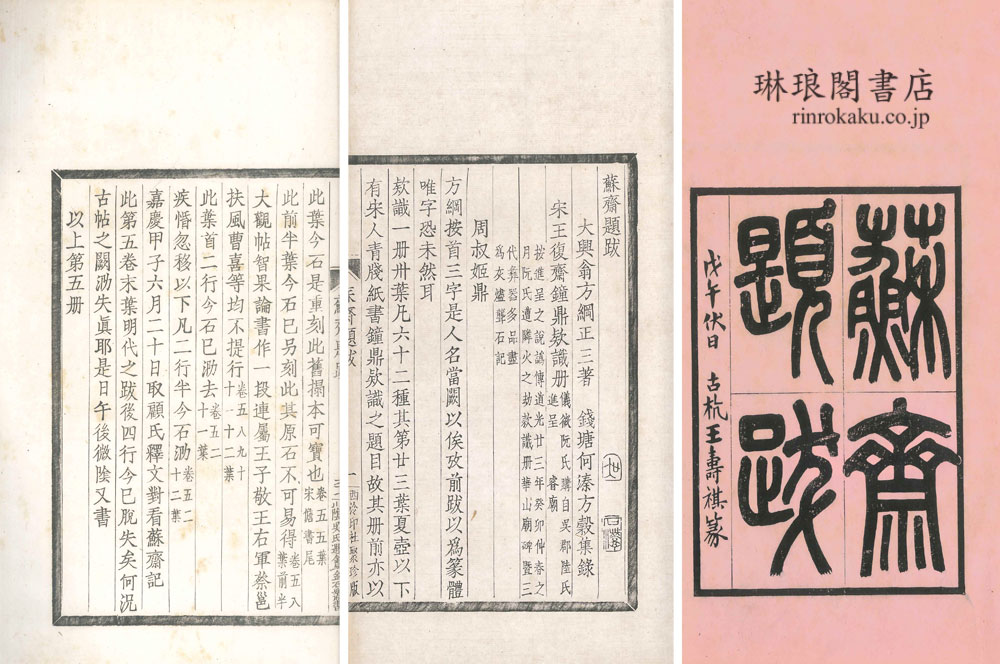 琳琅閣書店
rinrokaku.co.jp
蘇齋
題跋
戊午伏日 古杭王壽祺篆
蘇齋題跋
大興翁方綱正三著 錢塘何溱方穀集錄
宋王復齋鐘鼎欵識册 儀徵阮氏購自吳郡陸氏進呈 睿廟
按進呈之說譌傳道光廿三年癸卯仲春之
月阮氏遭隣火之劫款識册華山廟碑曁三
代彝器多品盡
爲灰燼聾石記
周叔姬鼎
方綱按首三字是人名當闕以俟攷前跋以爲篆體
唯字恐未然耳
欵識一册卅葉凡六十二種其第廿三葉夏壺以下
有宋人青牋紙書鐘鼎欵識之題目故其册前亦以
一 西泠印社聚珍版
此葉今石是重刻此舊搨本可寶也 卷五五葉宋儋書尾
此前半葉今石已另刻此其原石不可易得 卷五八葉前半
大觀帖智果論書作一段連屬王子敬王右軍蔡邕
扶風曹喜等均不提行 卷五八九十十一十二葉
此葉首二行今石已泐去 卷五二十一葉
疾惛忽移以下凡二行半今石泐 卷五二十二葉
嘉慶甲子六月二十日取顧氏釋文對看蘇齋記
此第五卷末葉明代之跋後四行今已脫失矣何況
古帖之闕泐失眞耶是日午後微陰又書
以上第五册